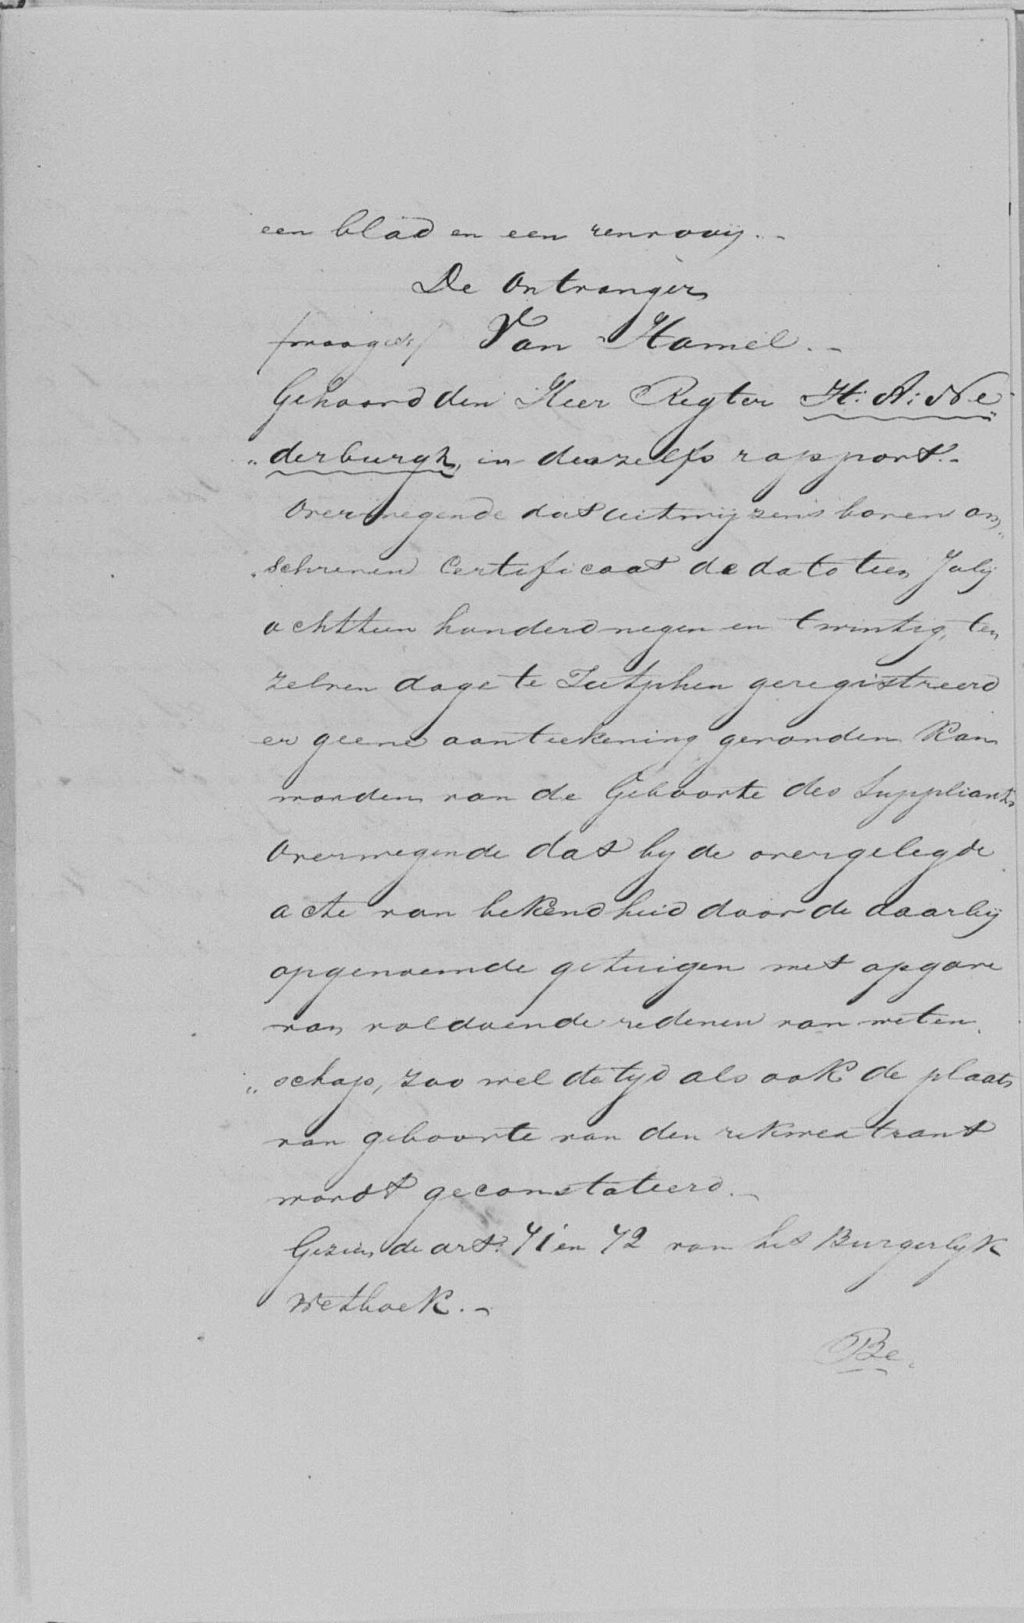 een blad en een renvooij. -
De Ontvanger
/was get/ Van Hamel. -
Gehoord den Heer Regter H: A: Ne
„derburgh, in deszelfs rapport. -
Overwegende dat uitwijzens boven om
„schreven Certificaat de dato tien Julij
achttien honderd negen en twintig, ten
zelven dage te Zutphen geregistreerd
er geene aanteekening gevonden kan
worden van de Geboorte des Suppliants
Overwegende dat bij de overgelegde
acte van bekendheid door de daarbij
opgenoemde getuigen met opgave
van voldoende redenen van weten
„schap, zoo wel de tijd als ook de plaats
van geboorte van den rekwestrant
wordt geconstateerd. -
Gezien de art: 71 en 72 van het Burgerlijk
Wetboek. -
Be